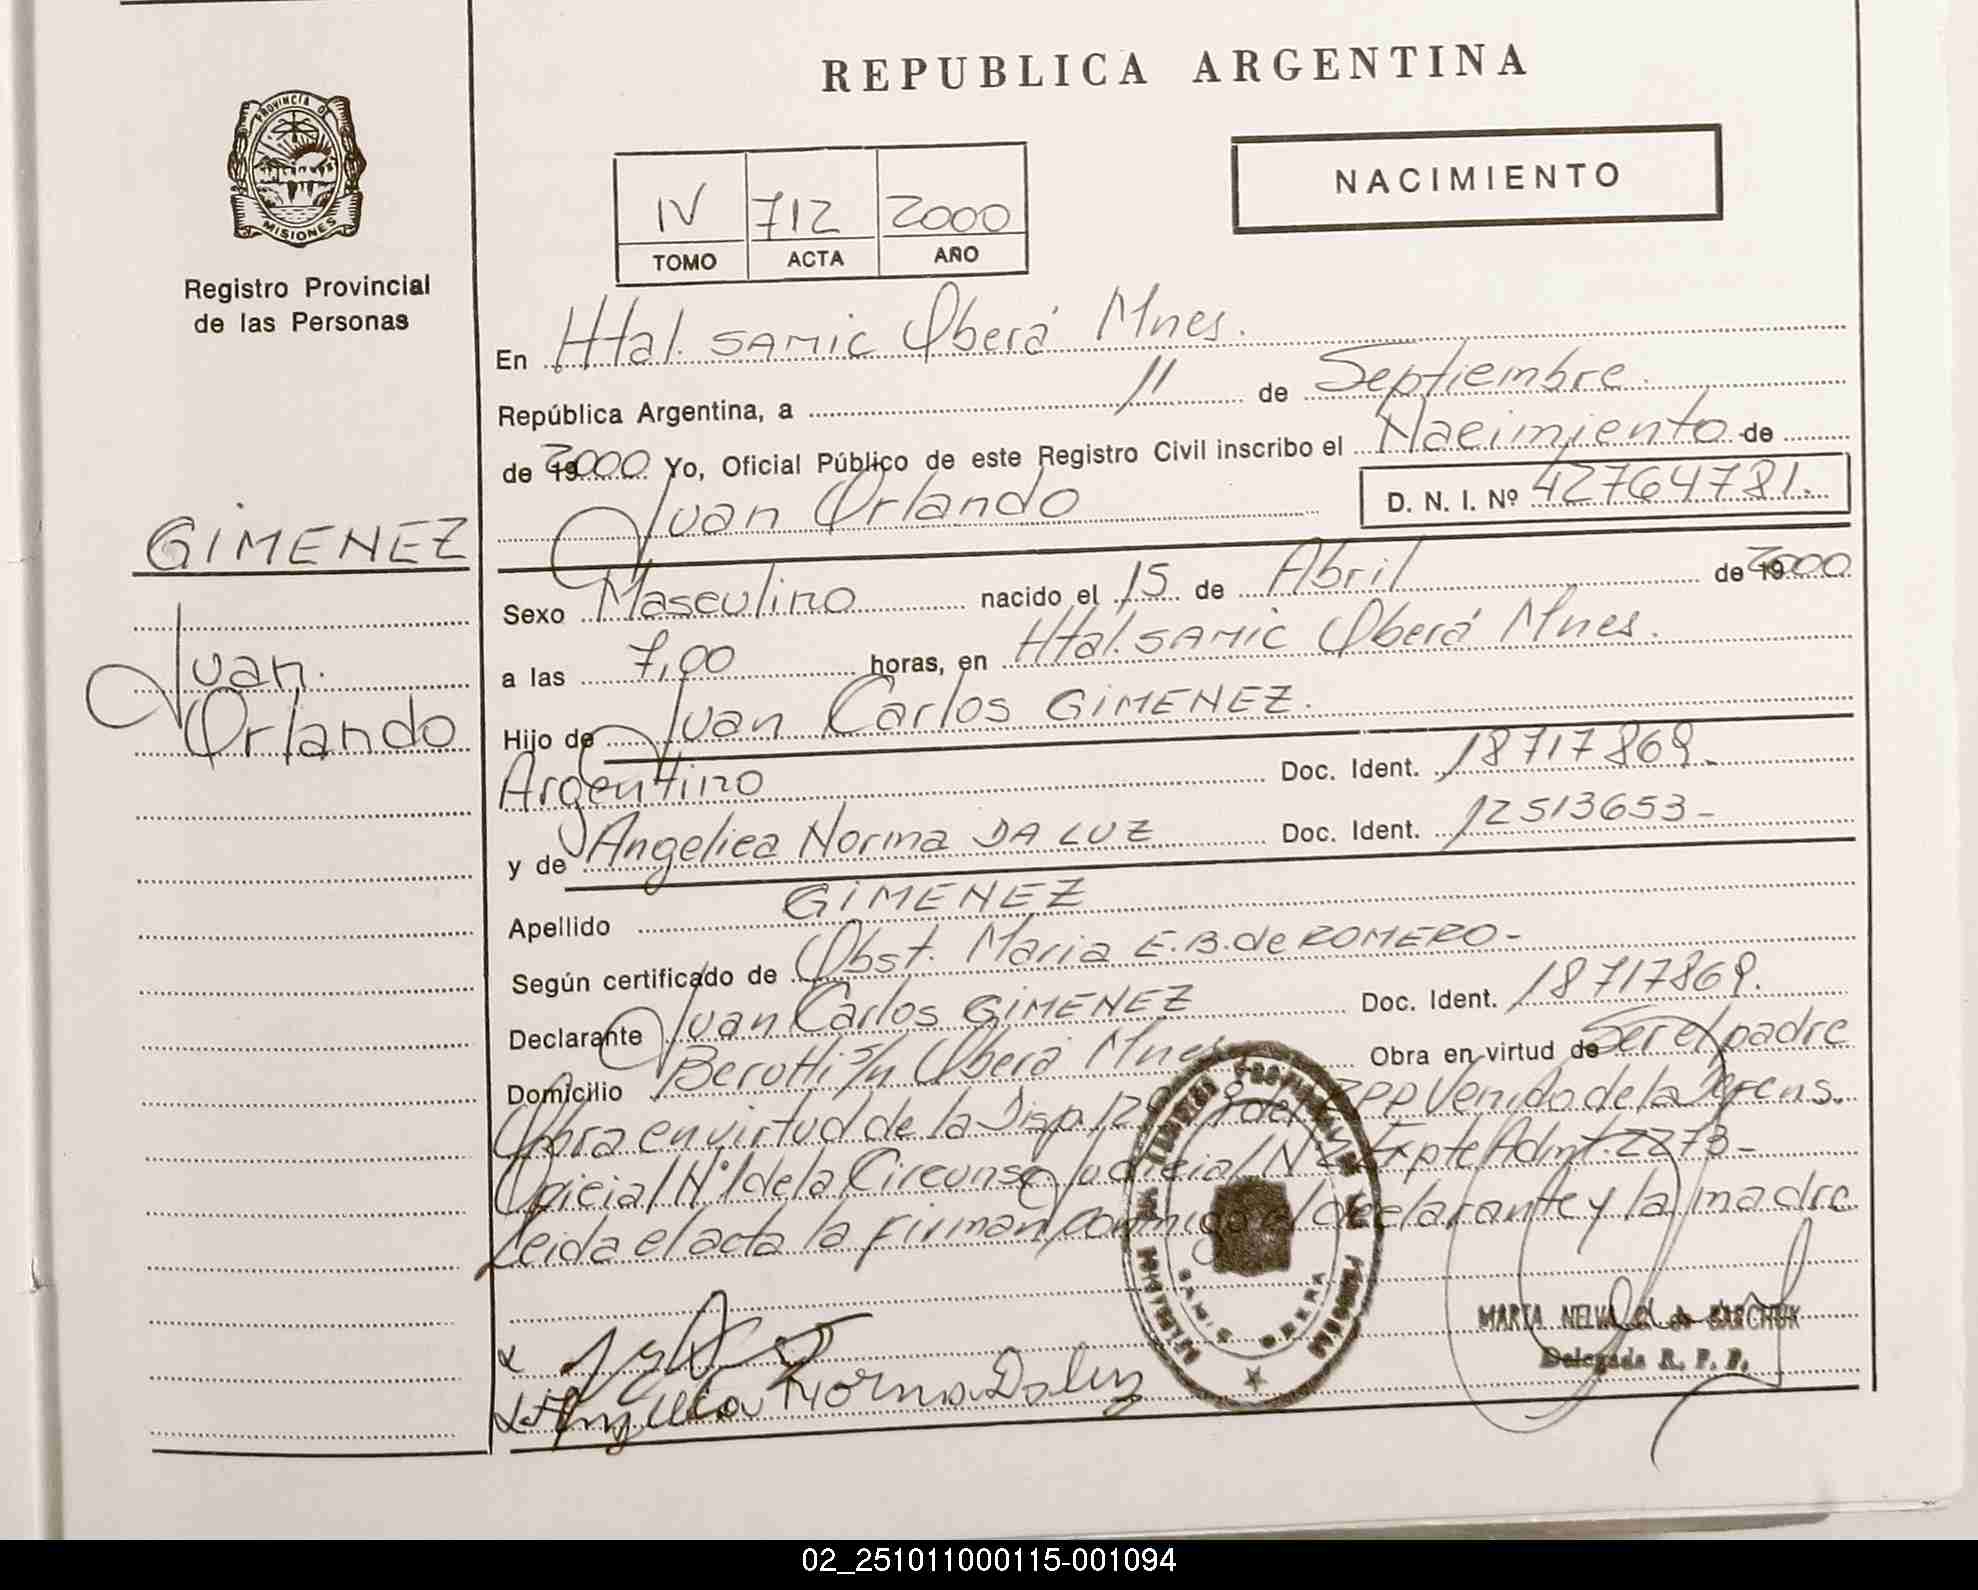 REPUBLICA ARGENTINA
PROVINCIA DE
MISIONES
Registro Provincial
de las Personas
NACIMIENTO
IV 712 2000
TOMO ACTA AÑO
En Htal. SAMIC Oberá Mnes.
República Argentina, a 11 de Septiembre
de 2000 Yo, Oficial Público de este Registro Civil inscribo el Nacimiento de
Juan Orlando D. N. I. Nº 42764781.
GIMENEZ
Juan.
Orlando
Sexo Masculino nacido el 15 de Abril de 2000
a las 7,00 horas, en Htal. SAMIC Oberá Mnes.
Hijo de Juan Carlos GIMENEZ.
Argentino Doc. Ident. 18717869.
y de Angelica Norma DA LUZ Doc. Ident. 12513653-
Apellido GIMENEZ
Según certificado de Obst. Maria E.B. de ROMERO-
Declarante Juan Carlos GIMENEZ Doc. Ident. 18717869.
Domicilio Berotti s/n Oberá Mnes Obra en virtud de Ser el padre
Obra en virtud de la Disp. del Venido de la Defens.
Oficial Nº1 de la Circunsc Judicial Nº Expte Admt. 2273-
Leida el acta la firman conmigo el declarante y la madre
Angelica Norma Da luz
MARIA NELVA de SARCHUK
Delegada R. P. P.
SAMIC OBERA
02_251011000115-001094